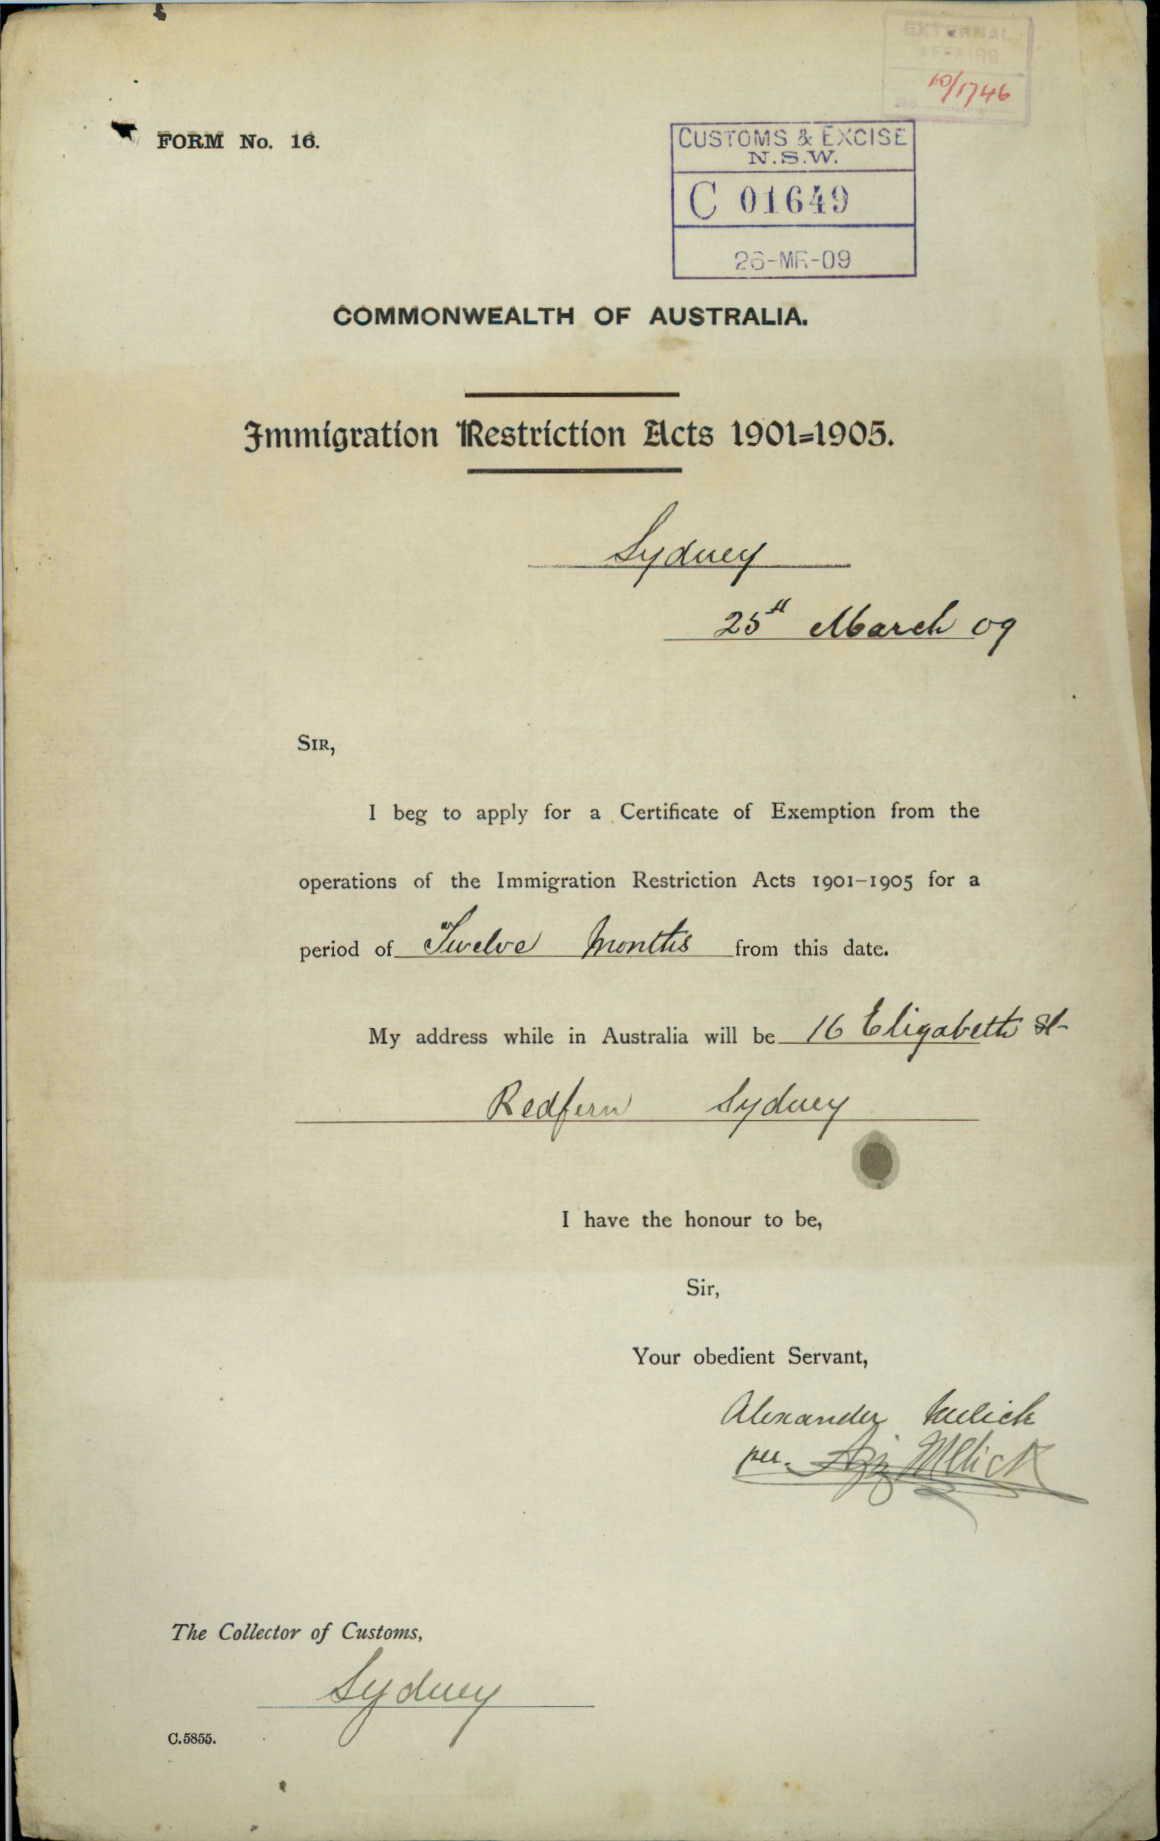 EXTERNAL
AFFAIRS
10/1746
FORM No. 16.
CUSTOMS & EXCISE
N.S.W.
C 01649
26-MR-09
COMMONWEALTH OF AUSTRALIA.
Immigration Restriction Acts 1901=1905.
Sydney
25th March 09
SIR,
I beg to apply for a Certificate of Exemption from the
operations of the Immigration Restriction Acts 1901–1905 for a
period of Twelve Months from this date.
My address while in Australia will be 16 Elizabeth St
Redfern Sydney
I have the honour to be,
Sir,
Your obedient Servant,
Alexander Melick
per. Aziz Melick
The Collector of Customs,
Sydney
C.5855.